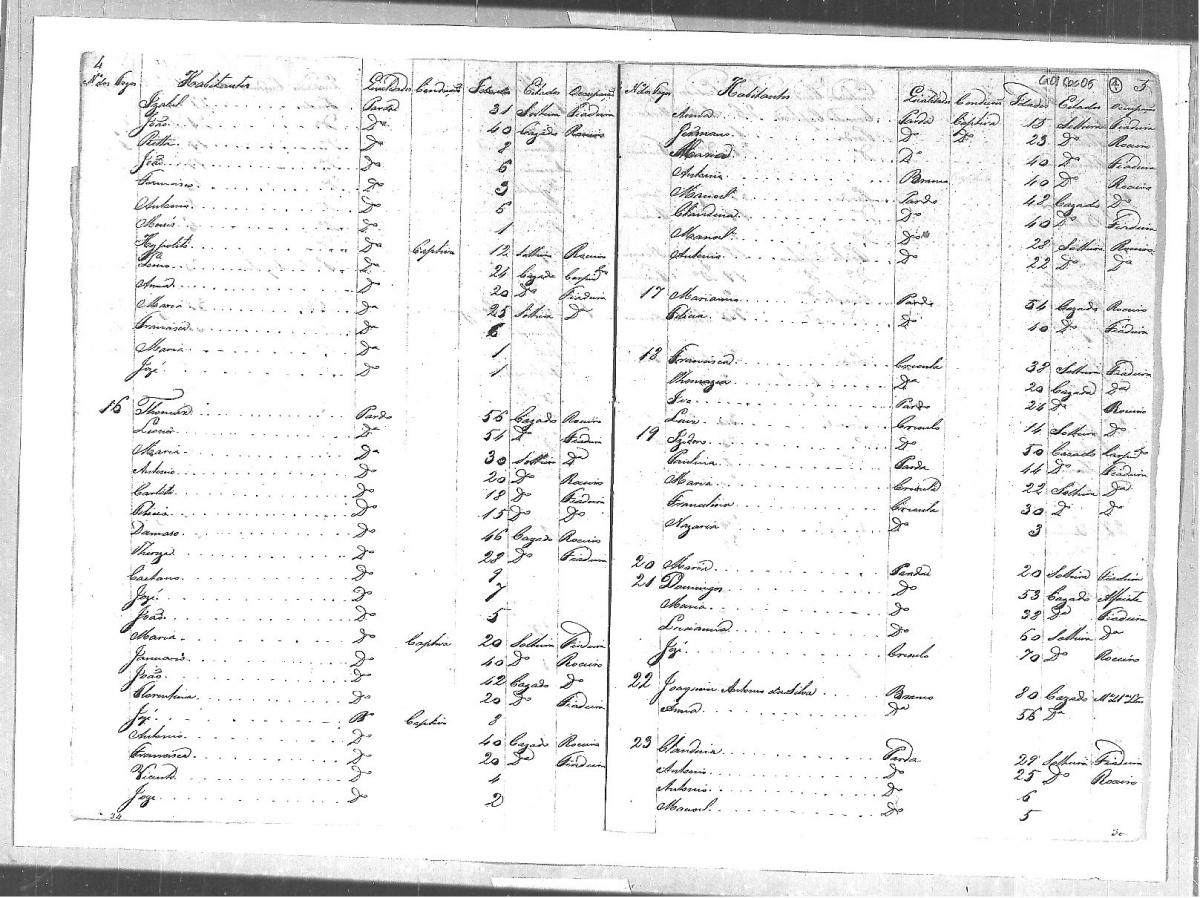 4
Nº dos Fogos Habitantes Qualidades Condição Idades Estados Ocupação
Izabel Parda 31 Solteira Fiadeira
João Dº 40 Cazado Roceiro
Ritta Dº 8
João Dº 6
Francisco Dº 3
Antonio Dº 5
Dº 1
Dº Captivo 12 Solteiro Roceiro
Dº 24 Cazado
Anna Dº 20 Dº Fiadeira
Maria Dº 25 Solteira Dª
Francisca Dº
Maria Dª 1
Jozé Dº 1
16 Pardo 56 Cazado Roceiro
Dª 54 Dº Fiadeira
Maria Dª 30 Solteira Dª
Antonio Dº 20 Dº Roceiro
Dº 18 Dº Fiadeira
Dº 15 Dº Dº
Damaso Dº 46 Cazado Roceiro
Thereza Dº 28 Dº Fiadeira
Caetano Dº 9
Jozé Dº 7
João Dº 5
Maria Dº Captiva 20 Solteira Fiadeira
Januario Dº 40 Dº Roceiro
João Dº 42 Cazado Dº
Florentina Dº 20 Dº Fiadeira
Jozé Captivo 8
Antonio Dº 40 Cazado Roceiro
Francisca Dº 20 Dª Fiadeira
Vicente Dº 4
Joze Dº 2
34
4 5
Nº dos Fogos Habitantes Qualidades Condição Idades Estados Ocupação
Anna Parda Captiva 15 Solteira Fiadeira
Dº Dº 23 Dº Roceiro
Maria Dº 40 Dº Fiadeira
Antonio Branco 40 Dº Roceiro
Manoel Pardo 42 Cazado Dº
Claudina Dº 40 Dº Fiadeira
Manoel Dº 28 Solteiro Roceiro
Antonio Dº 22 Dº Dª
17 Marianno Pardo 54 Cazado Roceiro
Dº 40 Dº Fiadeira
18 Francisca Crioula 38 Solteira Fiadeira
Thomazia Dª 20 Cazada Dª
Pardo 24 Dº Roceiro
Luis Crioulo 14 Solteiro Dº
19 Izidoro Dº 50 Cazado
Paulina Parda 44 Dº Fiadeira
Maria Crioula 22 Solteira Dª
Francelina Crioula 30 Dº Dº
Nazaria Dº 3
20 Maria Parda 20 Solteira Fiadeira
21 Domingos Dº 53 Cazado Alfaiate
Maria Dº 38 Dª Fiadeira
Dº 60 Solteira Dª
Jozé Crioulo 70 Dº Roceiro
22 Joaquim Antonio da Silva Branco 80 Cazado
Anna Dª 56 Dª
23 Claudina Parda 29 Solteira Fiadeira
Antonio Dº 25 Dº Roceiro
Antonio Dº 6
Manoel Dº 5